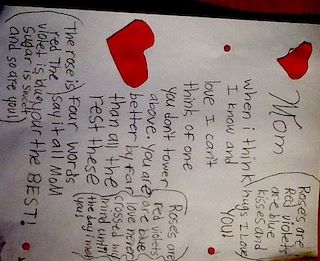 Mom
when i think
I know and
love I can't
think of one
you don't tower
above. you are
better by far
than all the
rest these
four words
say it all MOM
your the BEST!
Roses are
Red violets
are blue
kisses and
hugs I love
YOU!
Roses are
red violets
are blue
love never
crossed my
mind until
the day i met
you!
The rose is
red The
violet is blue
Sugar is sweet
and so are you!